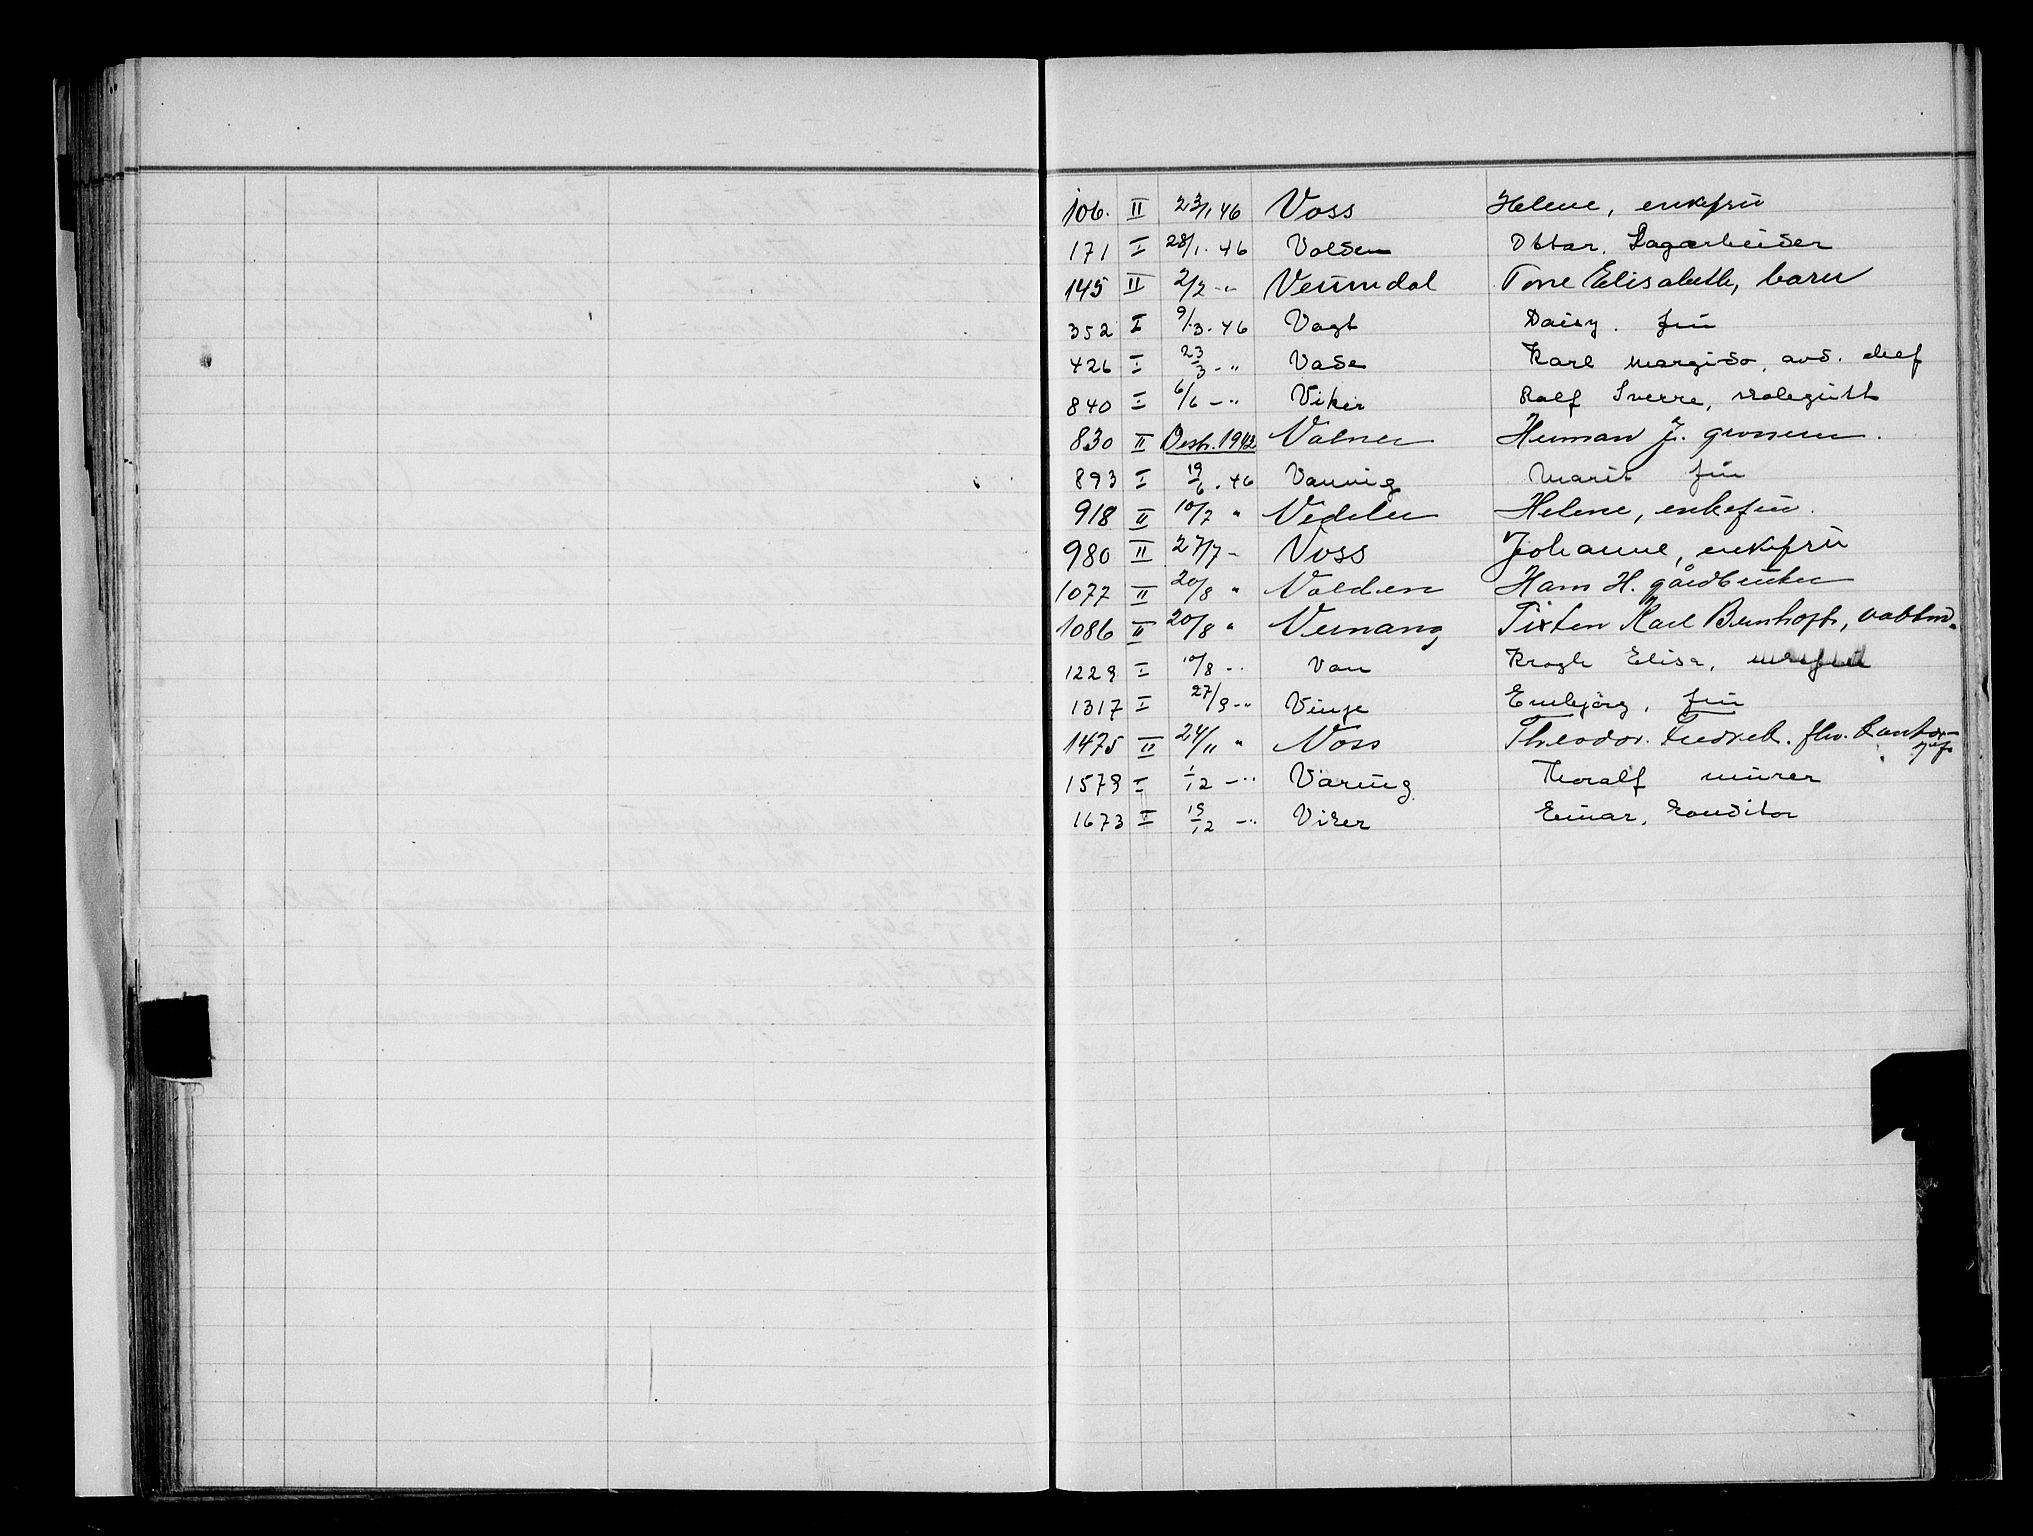 106. II 23/1 46 Voss Helene, enkefrü
171 I 28/1. 46 Volden Ottar. Sagarbeider
145 II 2/2 -"- Veumdal Tone Elisabeth, barn
352 I 9/3. 46 Vogt Daisy. frü
426 I 23/3 - " Vade Karl Margido, avd. chef
840 I 6/6 - " Viker Rolf Sverre, skolegutt
830 II Desbr. 1942 Valner Herman J.
893 I 19/6. 46 Vannvig Marit frü
918 II 10/7 " Vedeler Helene, enkefrü.
980 II 27/7 - Voss Johanne, enkefrü
1077 II 20/8 " Volden Hans H. gårdbruker
1086 II 20/8 " Vernang Sixten Karl Bernhoft, vaktm.
1229 I 10/8 - " Van Krogh Elisa,
1317 I 27/9 - " Vinje Embjörg, frü
1475 II 24/11 " Voss Theodor. Fredrek. fhv. Kontor-
sjef
1579 I 1/12 - " Våring Thoralf mürer
1673 I 19/12 - " Viker Einar, Konditor